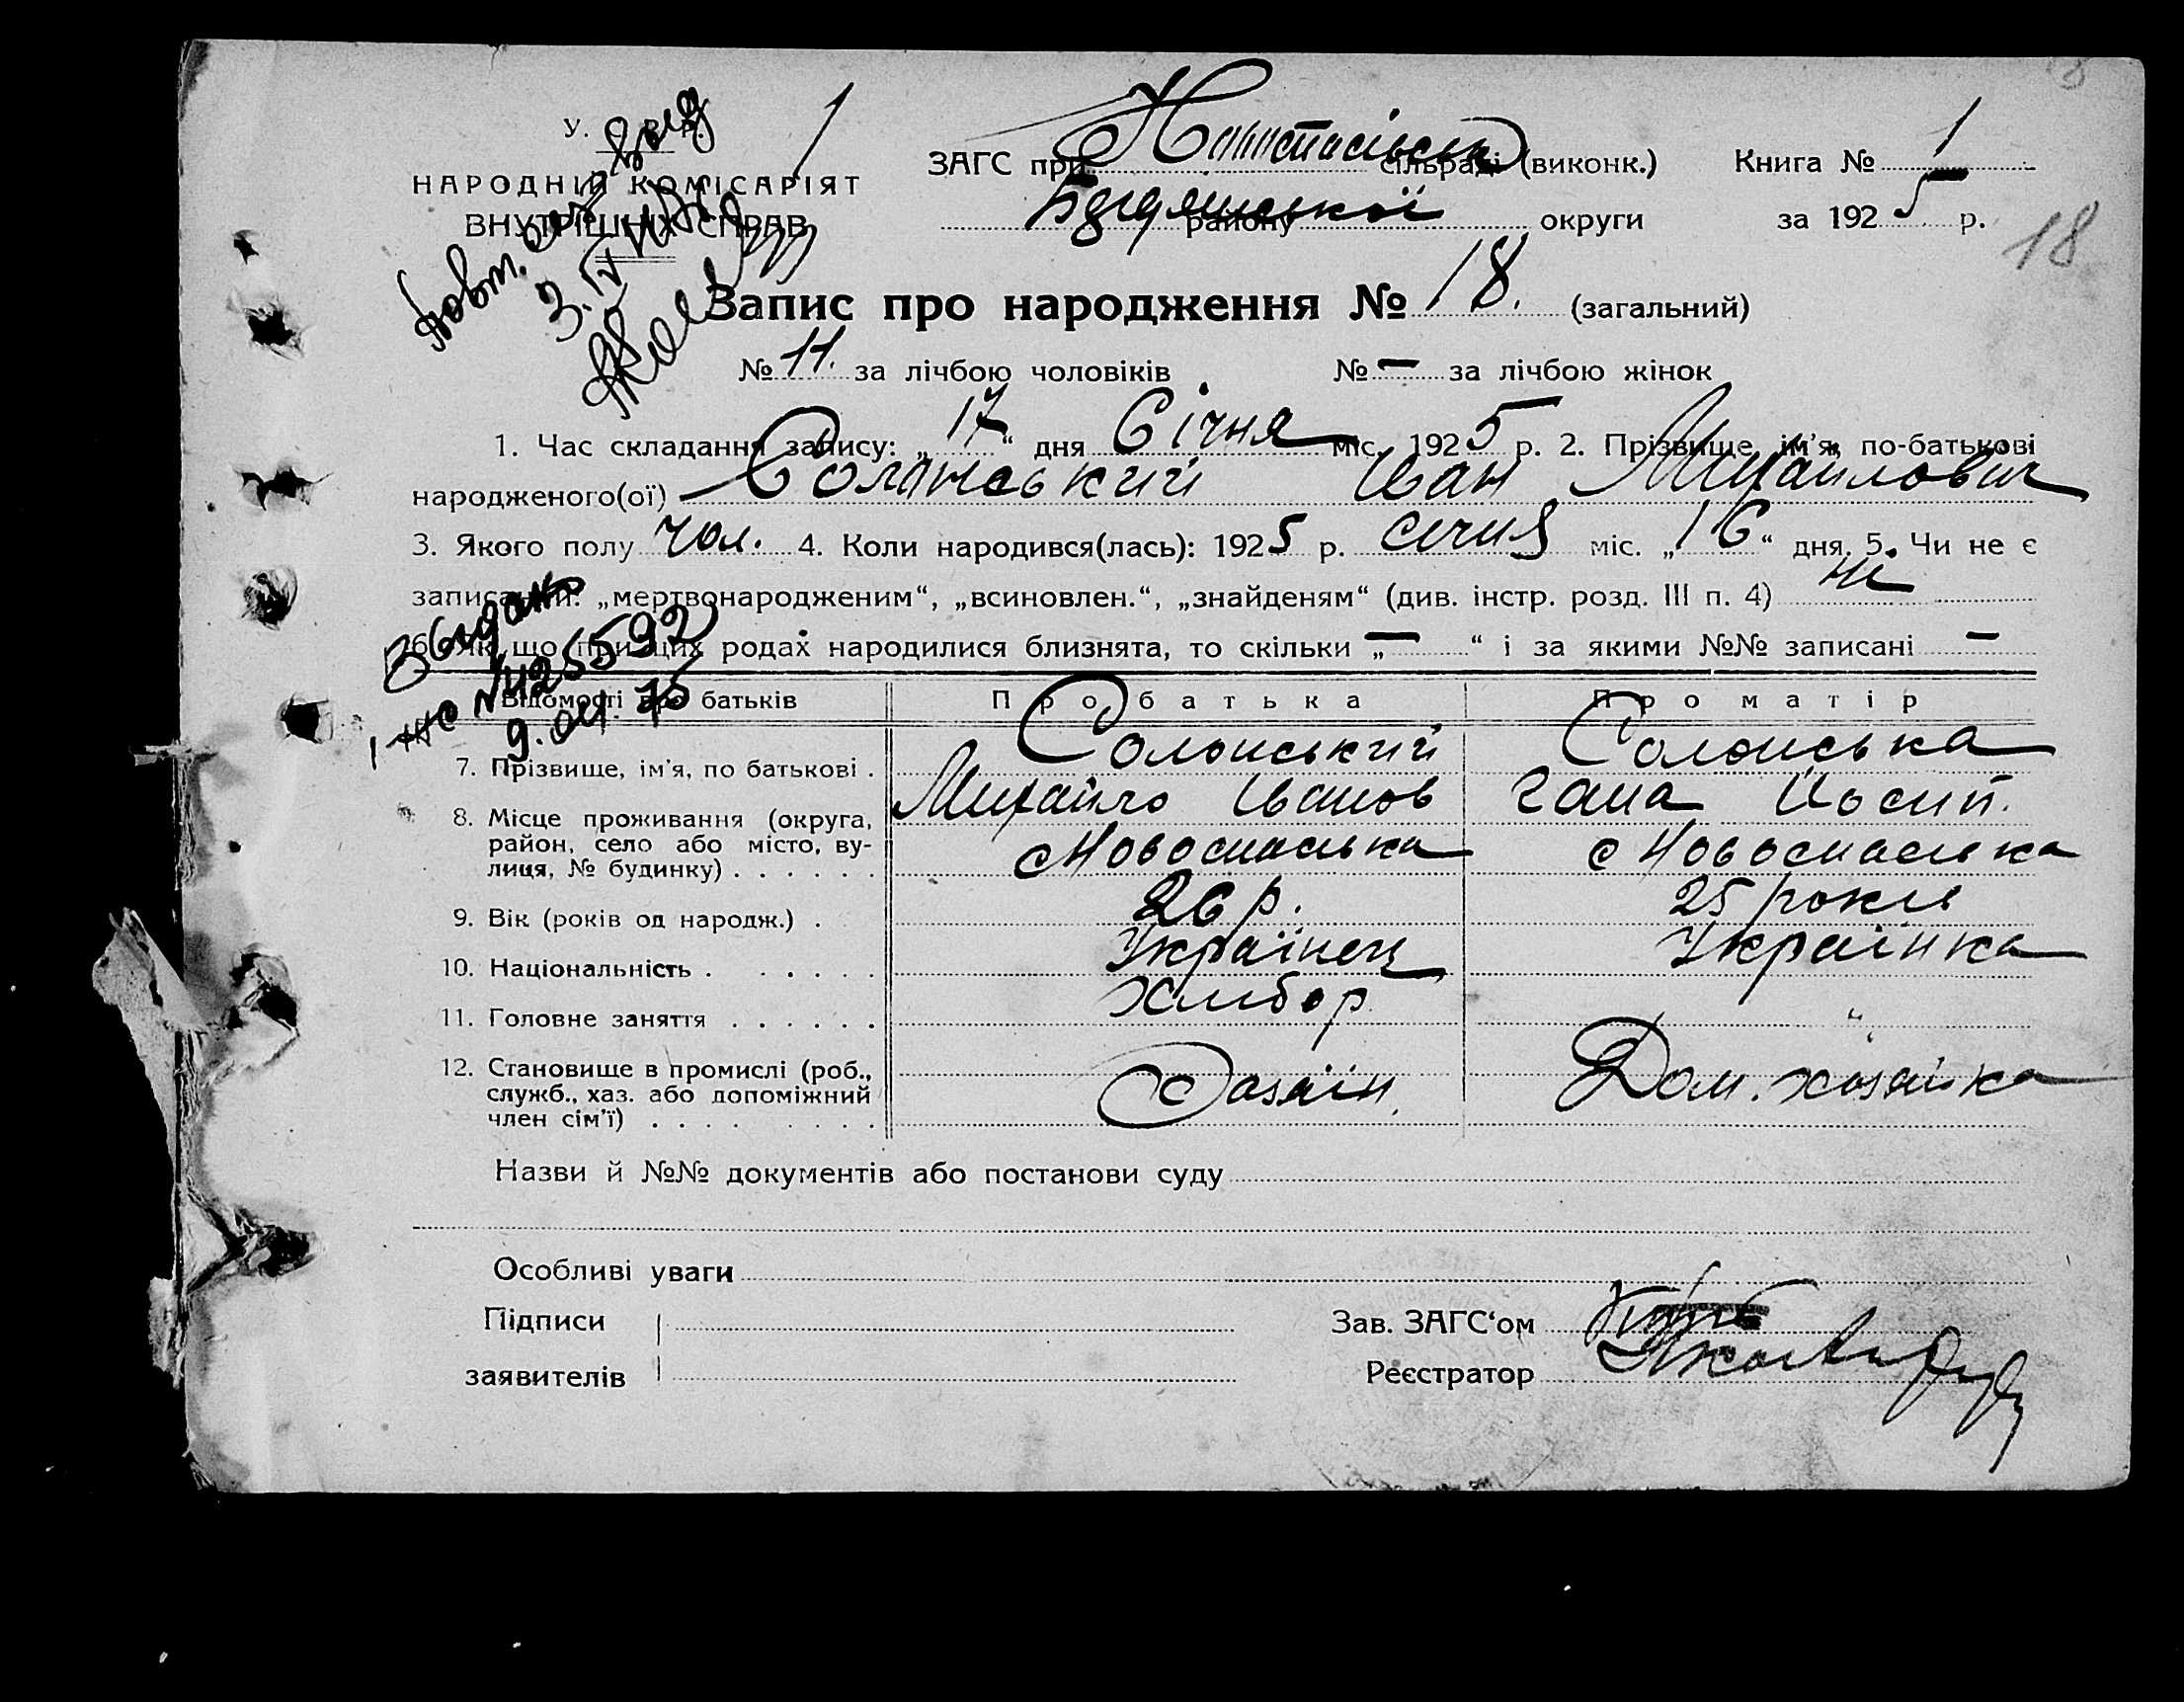 У. С. Р. Р.
НАРОДНІЙ КОМІСАРІЯТ
ВНУТРІШНІХ СПРАВ
ЗАГС при сільраді (виконк.) Книга № 1
району округи за 1925 р.
18
Запис про народження № 18. (загальний)
№ 11. за лічбою чоловіків № — за лічбою жінок
1. Час складання запису: „17“ дня Січня міс. 1925 р. 2. Прізвище, ім'я, по-батькові
народженого(ої) Солонський Іван Михайлович
3. Якого полу чол. 4. Коли народився(лась): 1925 р. січня міс. „16“ дня. 5. Чи не є
записаний: „мертвонародженим“, „всиновлен.“, „знайденям“ (див. інстр. розд. III п. 4) ні
6. Як що при цих родах народилися близнята, то скільки „—“ і за якими №№ записані —
Відомості про батьків Про батька Про матір
7. Прізвище, ім'я, по батькові . Солонський Михайло Іванов Солонська Гана Йосип.
8. Місце проживання (округа, район, село або місто, вулиця, № будинку) . . . . . . с Новоспаська с Новоспаська
9. Вік (років од народж.) . 26 р. 25 років
10. Національність . . . . . . Українец Українка
11. Головне заняття . . . . . . Хлибор "
12. Становище в промислі (роб., служб., хаз. або допоміжний член сім'ї) . . . . . . . . Хазяін. Дом. хозяйка
Назви й №№ документів або постанови суду
Особливі уваги
Підписи Зав. ЗАГС‘ом
заявителів Реєстратор